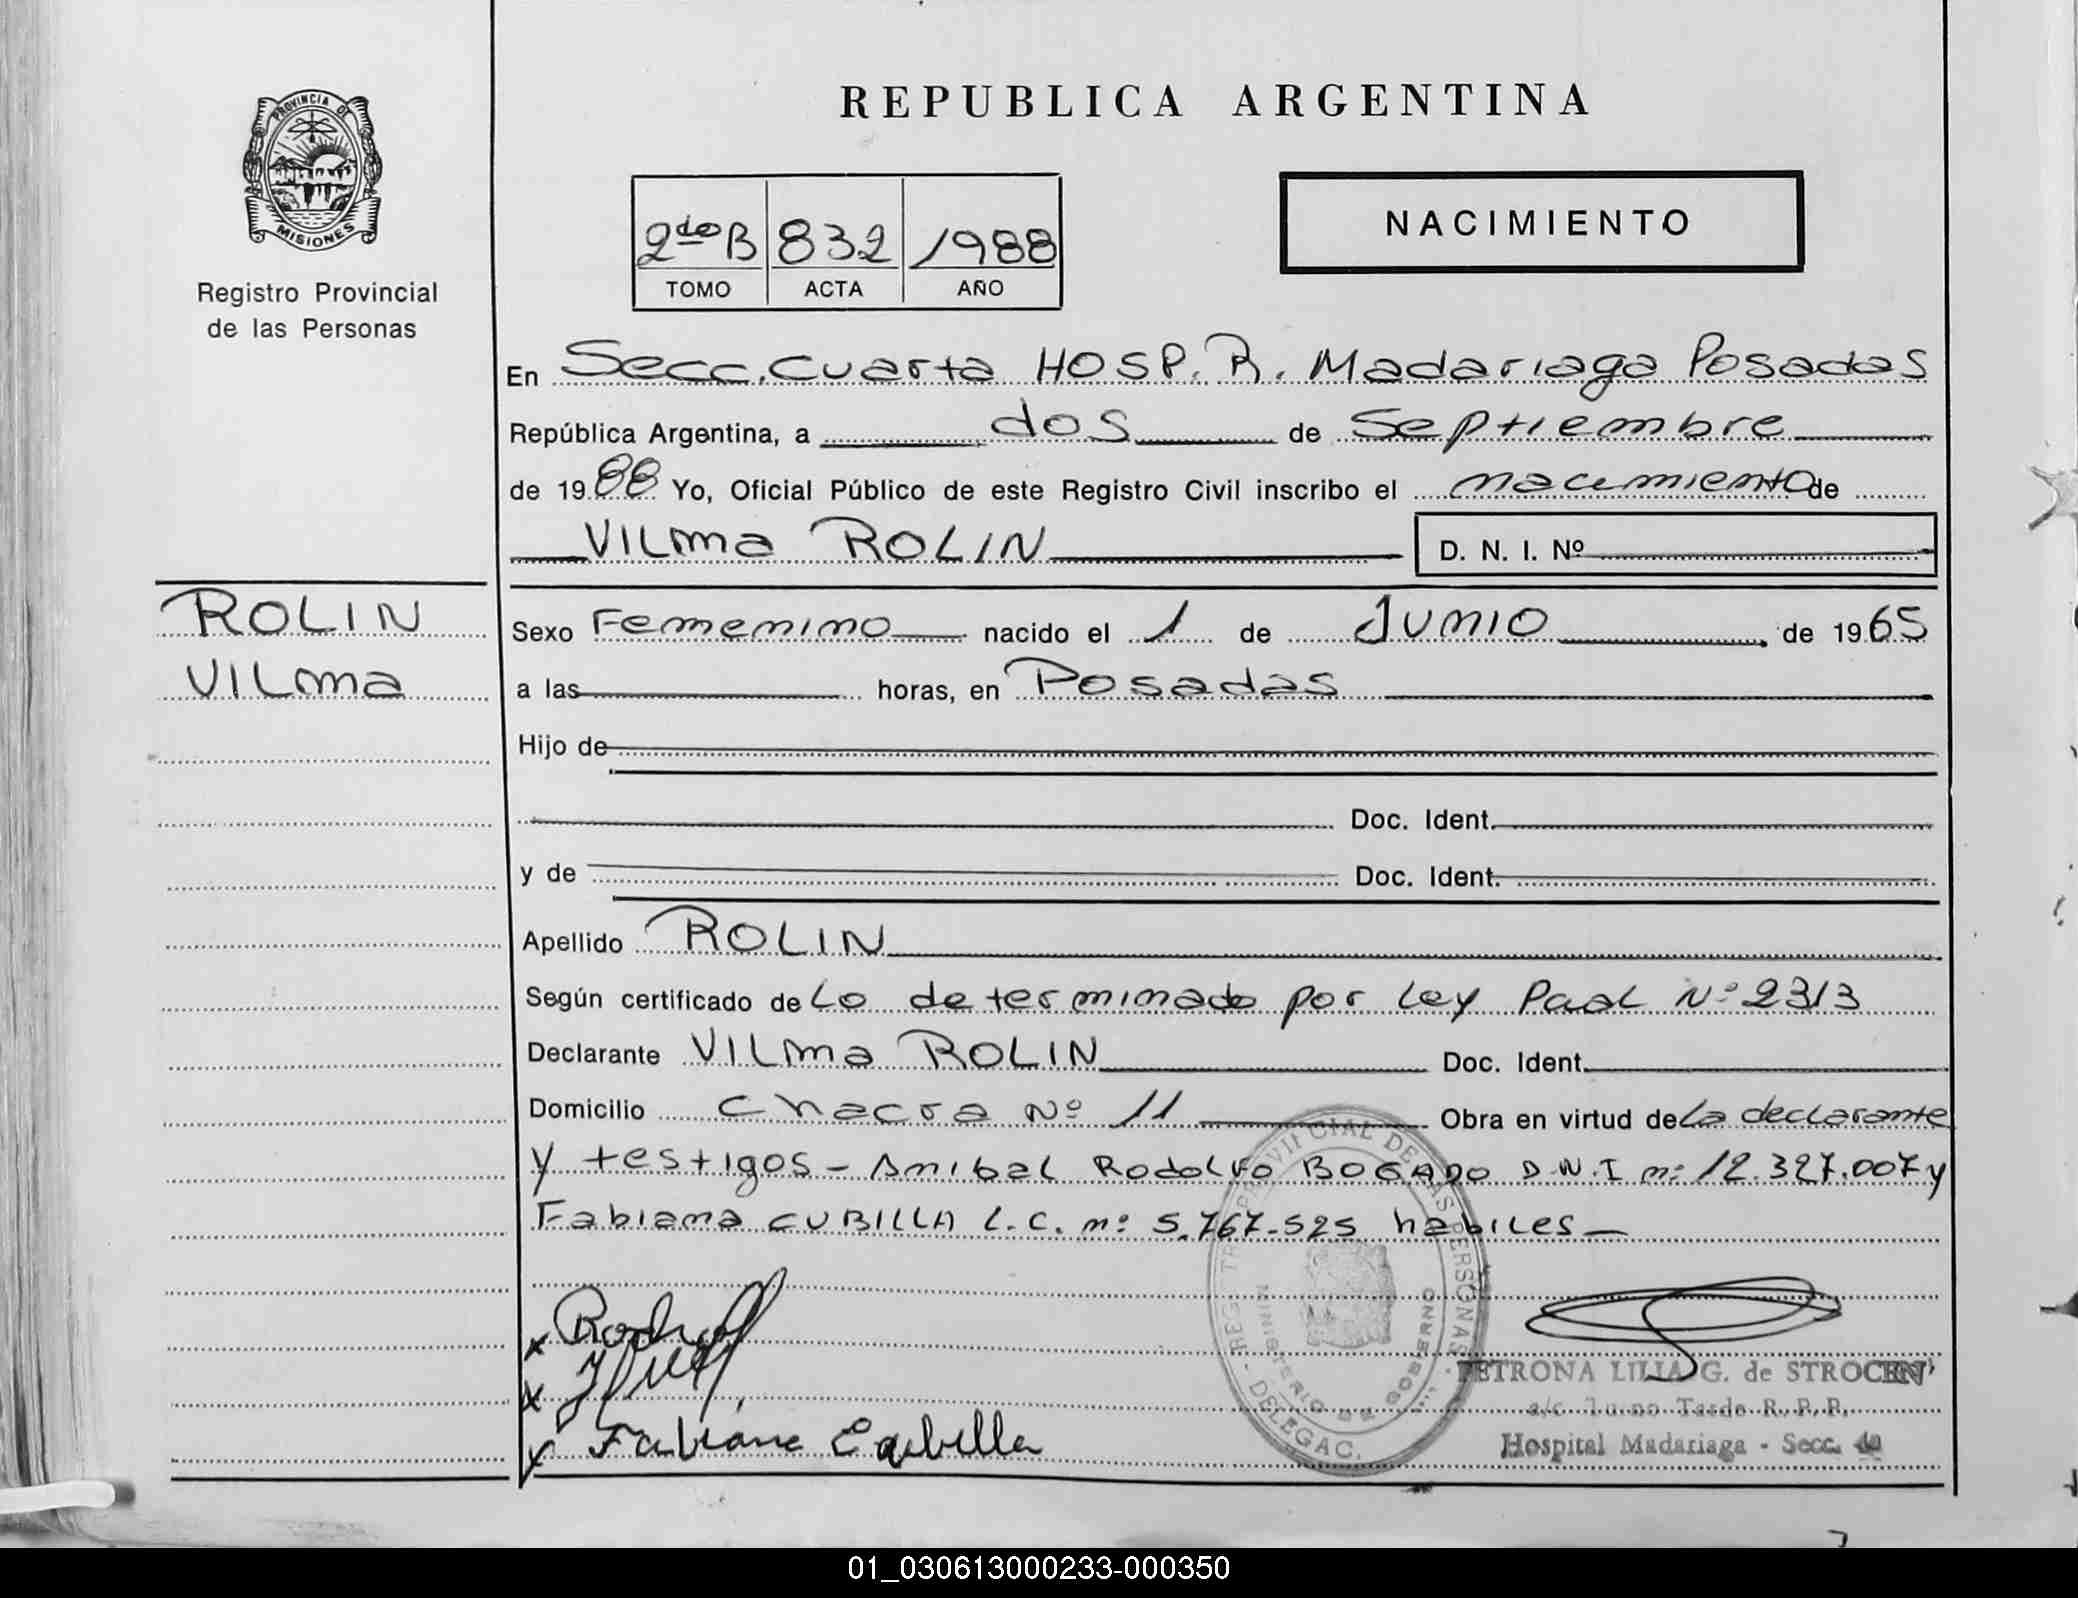 REPUBLICA ARGENTINA
PROVINCIA DE
MISIONES
Registro Provincial
de las Personas
2do B 832 1988
TOMO ACTA AÑO
NACIMIENTO
En Secc. Cuarta HOSP. R. Madariaga Posadas
República Argentina, a dos de Septiembre
de 1988 Yo, Oficial Público de este Registro Civil inscribo el nacimiento de
VILma ROLIN D. N. I. Nº
ROLIN
VILma
Sexo Femenino nacido el 1 de Junio de 1965
a las horas, en Posadas
Hijo de
Doc. Ident.
y de Doc. Ident.
Apellido ROLIN
Según certificado de Lo determinado por Ley Paol Nº 2313
Declarante VILma ROLIN Doc. Ident.
Domicilio chacra Nº 11 Obra en virtud de La declarante
y testigos - Anibal Rodolfo BOGADO D.N.I nº 12.327.007 y
Fabiana CUBILLA L.C. nº 5.767.525 habiles -
REGISTRO PROVINCIAL DE LAS PERSONAS - DELEGAC.
MINISTERIO DE GOBIERNO
x
x
x Fabiana Cubilla
PETRONA LILIA G. de STROCEN
a/c. Turno Tarde R. P. P.
Hospital Madariaga - Secc. 4a
01_030613000233-000350